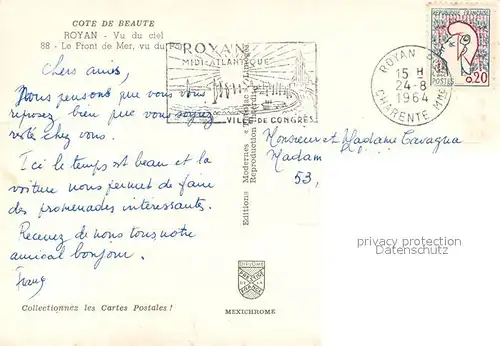 COTE DE BEAUTE
ROYAN - Vu du ciel
88 - Le Front de Mer, vu du
ROYAN
MIDI-ATLANTIQUE
VILLE DE CONGRÈS
REPUBLIQUE FRANCAISE
POSTES
0,20
ROYAN
15 H
24-8
1964
CHARENTE Mme
Chers amis,
Nous pensons que vous vous
reposez bien que vous soyez
resté chez vous.
Ici le temps est beau et la
voiture nous permet de faire
des promenades intéressantes.
Recevez de nous tous notre
amical bonjour.
Editions Modernes
Reproduction
Monsieur et Madame
Madam
53,
privacy protection
Datenschutz
MEXICHROME
Collectionnez les Cartes Postales !